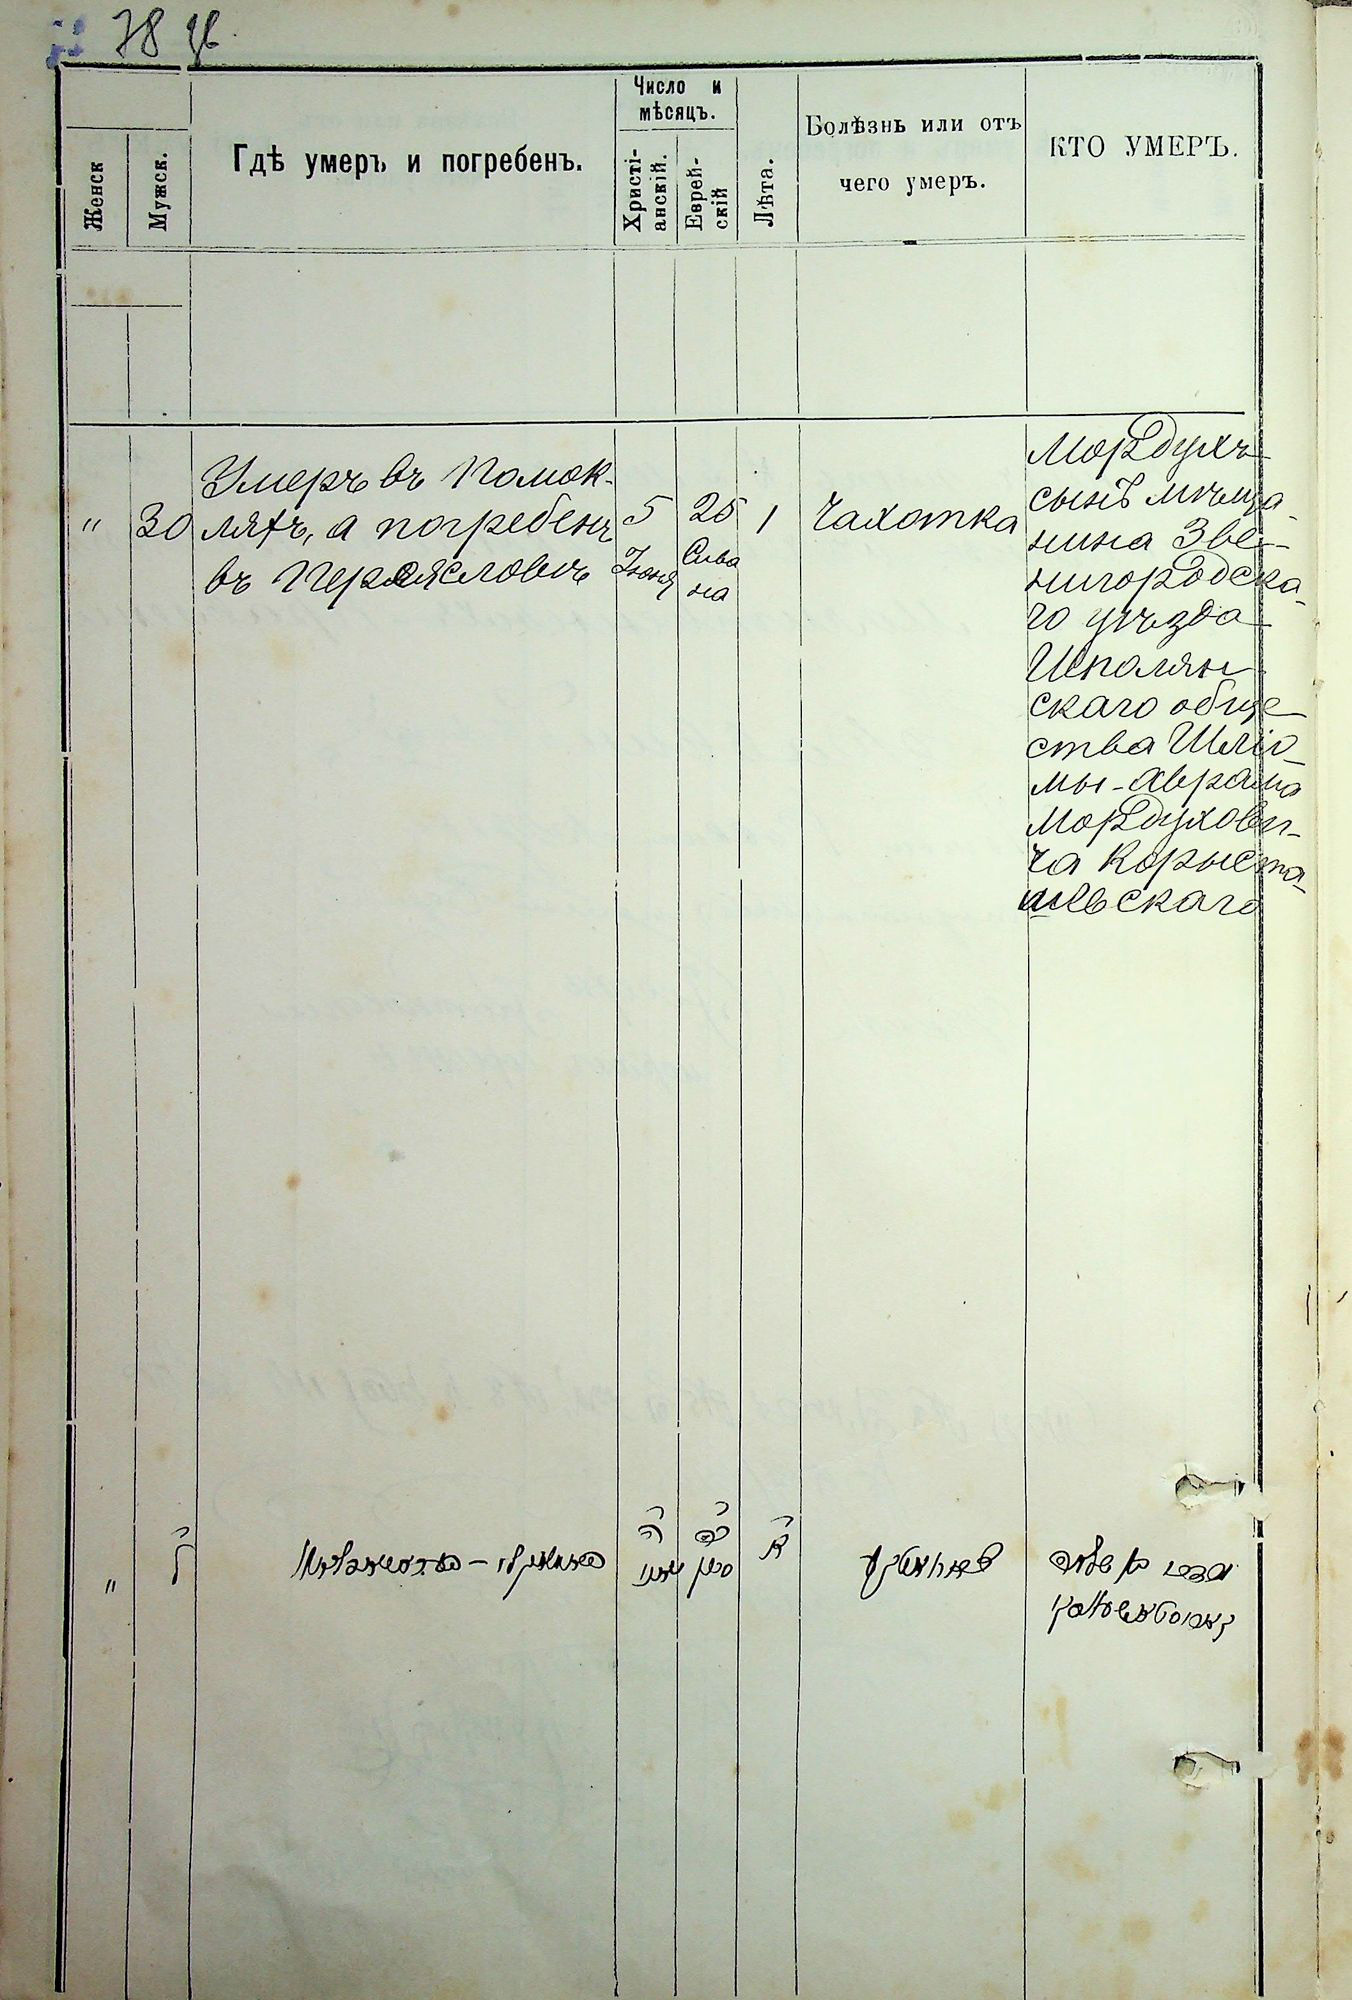 78
Женск
Мужск.
Гдѣ умеръ и погребенъ.
Число и
мѣсяцъ.
Христі-
анскій.
Еврей-
скій
Лѣта.
Болѣзнь или отъ
чего умеръ.
КТО УМЕРЪ.
"
30
Умеръ въ Помок-
ляхъ, а погребенъ
въ Переясловѣ
5
Іюня
25
Сива
на
1
Чахотка
Мордухъ
сынъ мѣща-
нина Зве-
нигородска-
го уѣзда
Шполян-
скаго обще
ства Шлio-
мы-Аврама
Мордухови-
ча Корыста-
шевскаго
"
ל
ה
יוני
כה
סיון
א